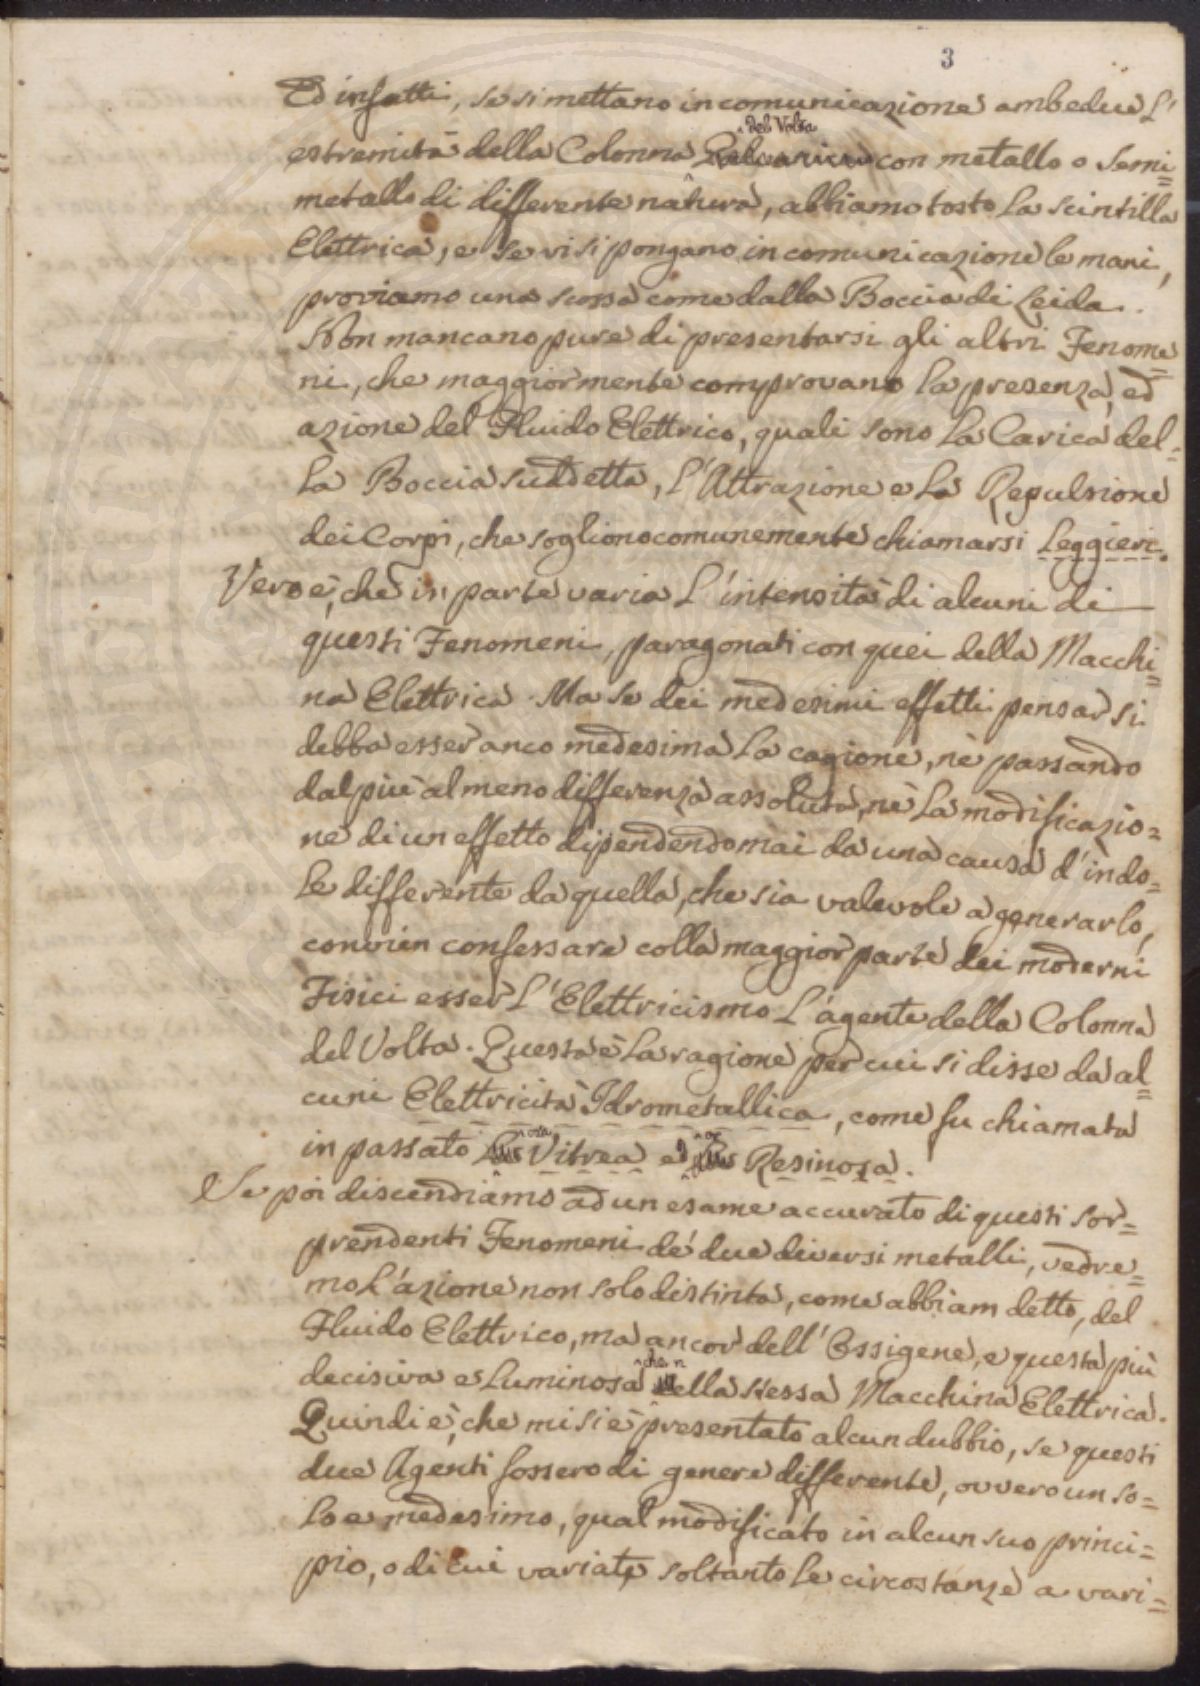 3
Ed infatti, se si mettano in comunicazione ambedue l'
del Volta
estremità della Colonna Galvanica con metallo o Semi=
metallo di differente natura, abbiamo tosto la scintilla
Elettrica, e se vi si pongano in comunicazione le mani,
proviamo una scossa come dalla Boccia di Leida.
Non mancano pure di presentarsi gli altri Fenome=
ni, che maggiormente comprovano la presenza, ed
azione del Fluido Elettrico, quali sono la Carica del=
la Boccia suddetta, l'Attrazione e la Repulsione
dei Corpi, che sogliono comunemente chiamarsi Leggieri.
Vero è, che in parte varia l'intensità di alcuni di
questi Fenomeni, paragonati con quei della Macchi=
na Elettrica. Ma se dei medesimi effetti pensar si
debba esser anco medesima la cagione, nè passando
dal più al meno differenza assoluta, nè la modificazio=
ne di un effetto dipendendo mai da una causa d'indo=
le differente da quella, che sia valevole a generarlo,
convien confessare colla maggior parte dei moderni
Fisici esser l'Elettricismo l'agente della Colonna
del Volta. Questa è la ragione per cui si disse da al=
cuni Elettricità Idrometallica, come fu chiamata
ora or
in passato Vitrea ed Resinosa.
Se poi discendiamo ad un esame accurato di questi sor=
prendenti Fenomeni de' due diversi metalli, vedre=
mo l'azione non solo distinta, come abbiam detto, del
Fluido Elettrico, ma ancor dell'Ossigene, e questa più
che n
decisiva e luminosa ella stessa Macchina Elettrica.
Quindi è, che mi si è presentato alcun dubbio, se questi
due Agenti fossero di genere differente, ovvero un so=
lo e medesimo, qual modificato in alcun suo princi=
pio, o di cui variate soltanto le circostanze a vari=